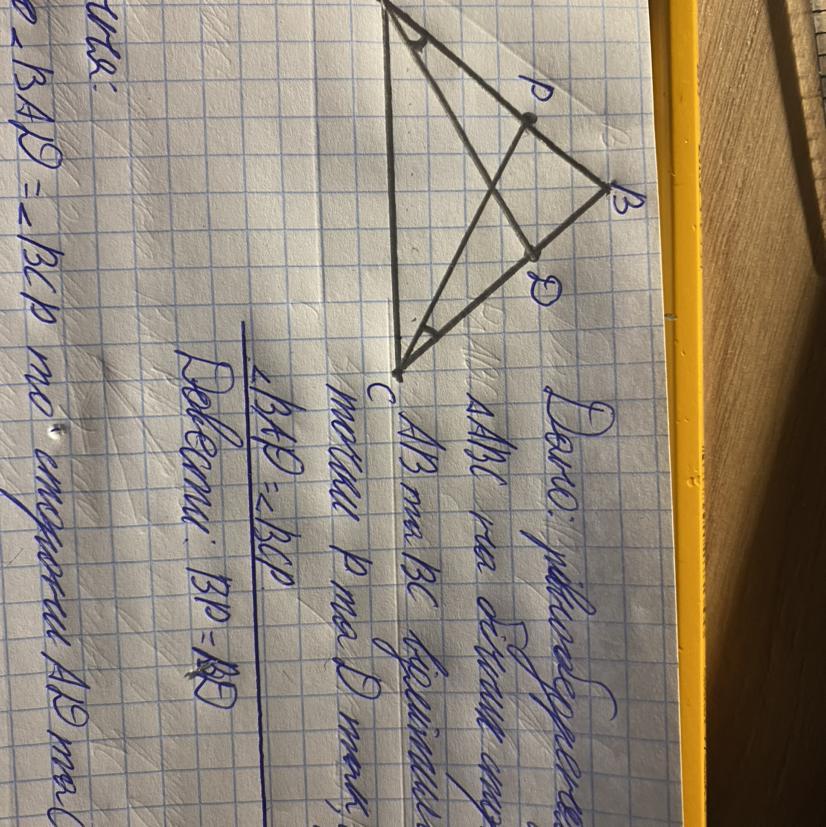 P
B
D
C
Дано: рівнобедрен
△ABC на бічних сто
AB та BC відмітили
точки P та D так,
∠BAD=∠BCP
Довести: BP=BD
ння:
∠BAD=∠BCP то сторони AD та C